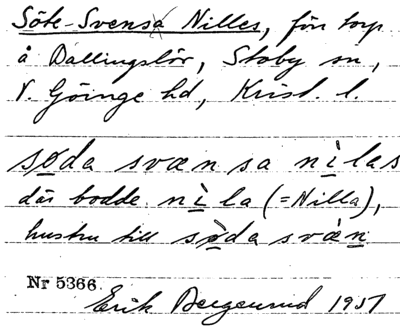 Söte-Svensa Nilles, förr torp
å Ballingslöv, Stoby sn,
V. Göinge hd, Krist. l.
sø̀da svæn sa nìlas
där bodde nìla (=Nilla),
hustru till sø̀da svæ̀n
Nr 5366.
Erik Bergerund 1957